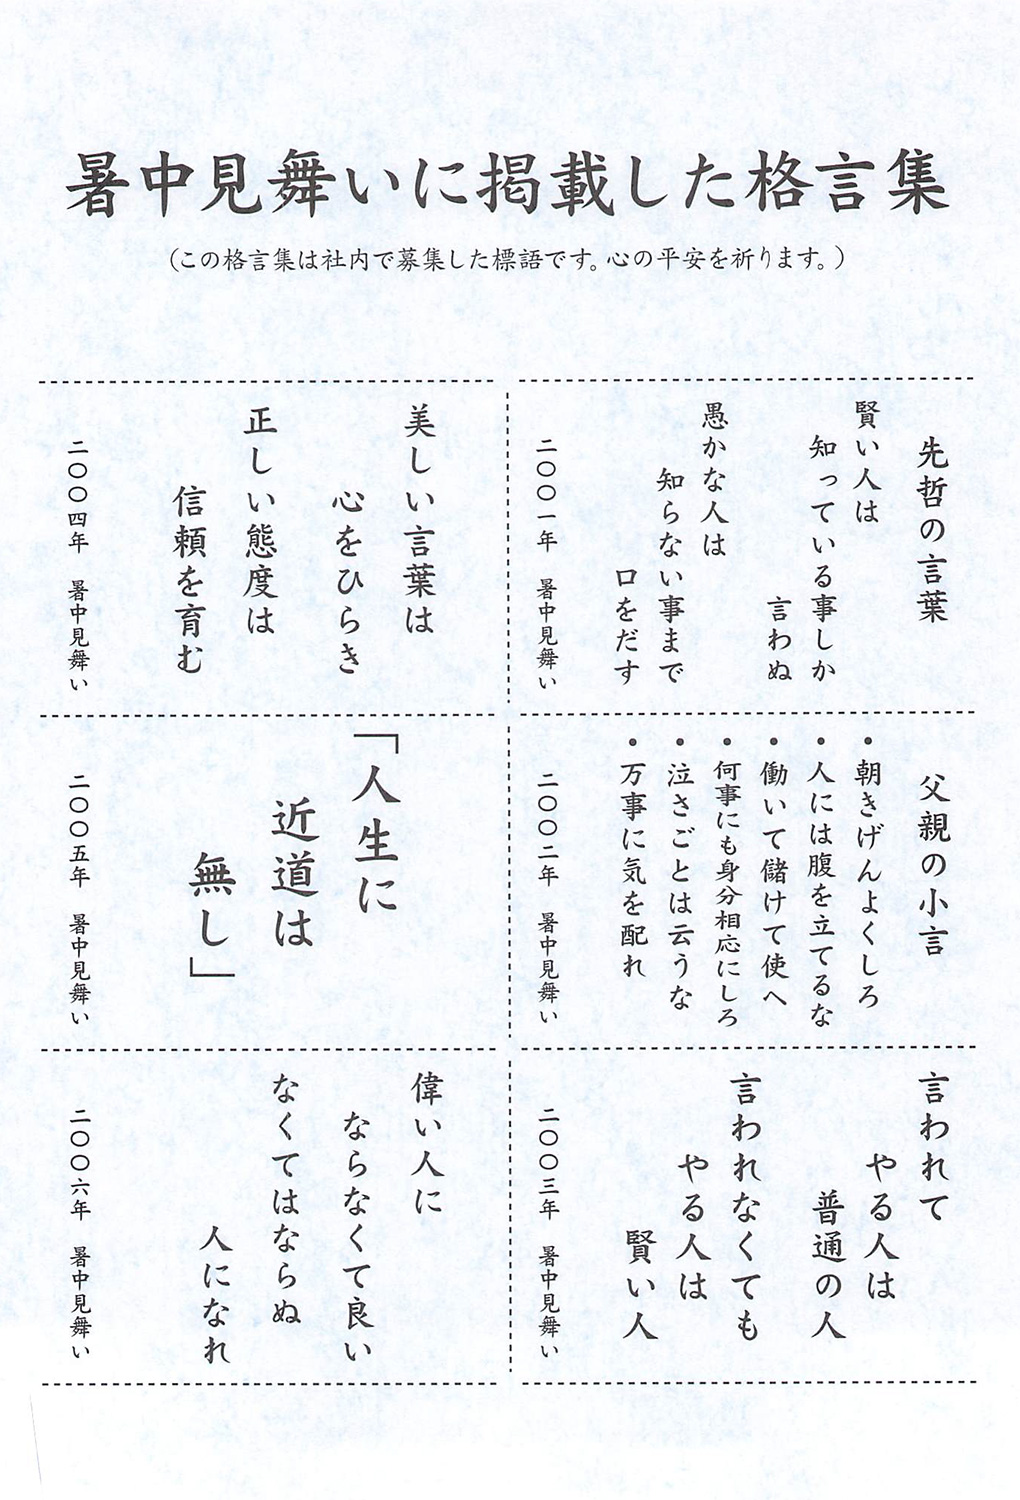 暑中見舞いに掲載した格言集
（この格言集は社内で募集した標語です。心の平安を祈ります。）
先哲の言葉
賢い人は
知っている事しか
言わぬ
愚かな人は
知らない事まで
口をだす
二〇〇一年　暑中見舞い
父親の小言
・朝きげんよくしろ
・人には腹を立てるな
・働いて儲けて使へ
・何事にも身分相応にしろ
・泣さごとは云うな
・万事に気を配れ
二〇〇二年　暑中見舞い
言われて
やる人は
普通の人
言われなくても
やる人は
賢い人
二〇〇三年　暑中見舞い
美しい言葉は
心をひらき
正しい態度は
信頼を育む
二〇〇四年　暑中見舞い
「人生に
近道は
無し」
二〇〇五年　暑中見舞い
偉い人に
ならなくて良い
なくてはならぬ
人になれ
二〇〇六年　暑中見舞い